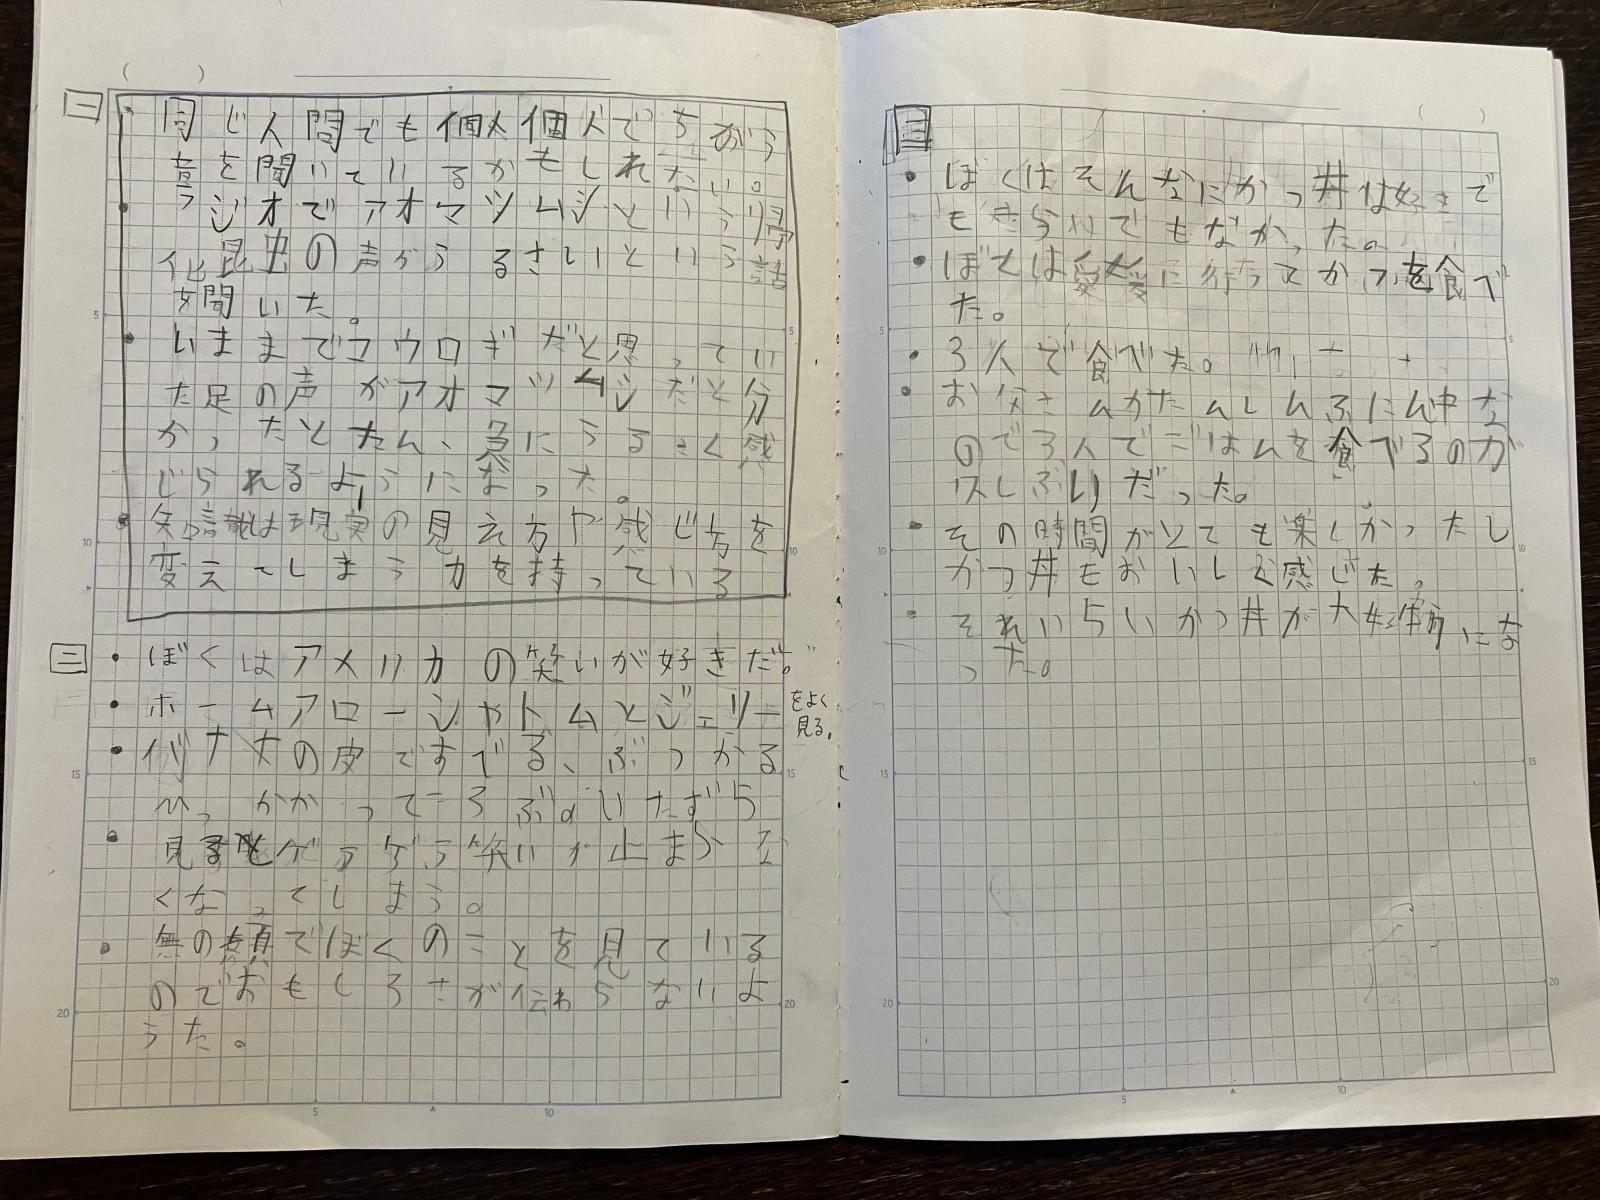 一
同じ人間でも個人個人でちがう
音を聞いているかもしれない。
ラジオでアオマツムシという帰
化昆虫の声がうるさいという話
を聞いた。
いままでコウロギだと思ってい
た足の声がアオマツムシだと分
かったとたん、急にうるさく感
じられるようになった。
知識は現実の見え方や感じ方を
変えてしまう力を持っている
二
ぼくはアメリカの笑いが好きだ。
ホームアローンやトムとジェリー
をよく
見る。
バナナの皮ですべる、ぶつかる
ひっかかってころぶ。いたずら
見るとゲラゲラ笑いが止まらな
くなってしまう。
無の顔でぼくのことを見ている
のでおもしろさが伝わらないよ
うだ。
三
ぼくはそんなにかつ丼は好きで
もきらいでもなかった。
ぼくは愛媛に行ってかつを食べ
た。
3人で食べた。
おなさんがたんしんふにん中な
ので3人でごはんを食べるのが
久しぶりだった。
その時間がとても楽しかったし
かつ丼もおいしく感じた。
それいらいかつ丼が大好物にな
った。
5
10
15
20
5
10
15
20
5
10
5
10
15
20
5
10
15
20
5
10